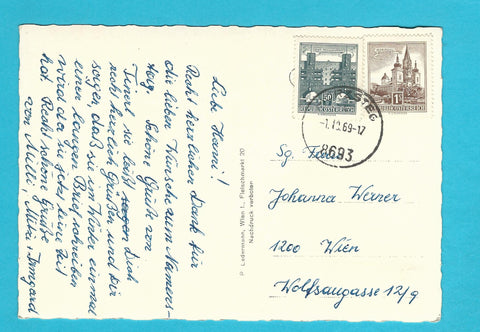 Liebe Hermi!
Recht herzlichen Dank für
die lieben Wünsche zum Namens-
tag. Schöne Grüße von
Tinerl, sie läßt sagen Dich
recht herzlich Grüßen und Dir
sagen, daß sie im Winter einmal
einen langen Brief schreiben
wird da sie jetzt keine Zeit
hat. Recht schöne Grüße
von Mutti, Irmgard
P. Ledermann, Wien 1., Fleischmarkt 20
Nachdruck verboten
REPUBLIK ÖSTERREICH
-1.10.69-17
8693
Sg. Frau
Johanna Werner
1200 Wien
Wolfsaugasse 12/9